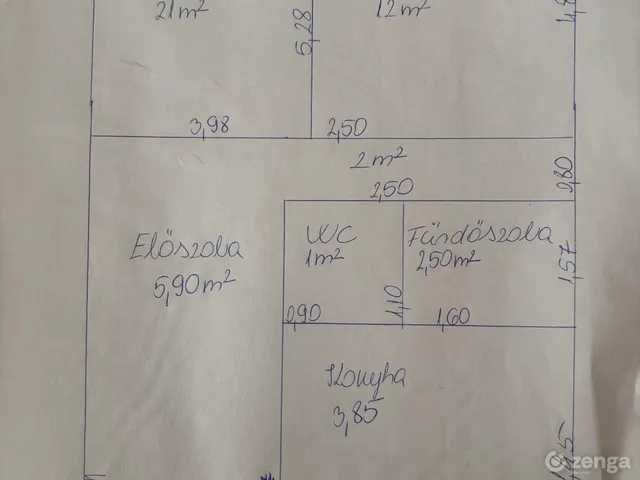 21 m²
12 m²
5,28
3,98
2,50
2 m²
2,50
0,80
Előszoba
5,90 m²
WC
1 m²
Fürdőszoba
2,50 m²
1,57
1,10
0,90
1,60
Konyha
3,85
zenga